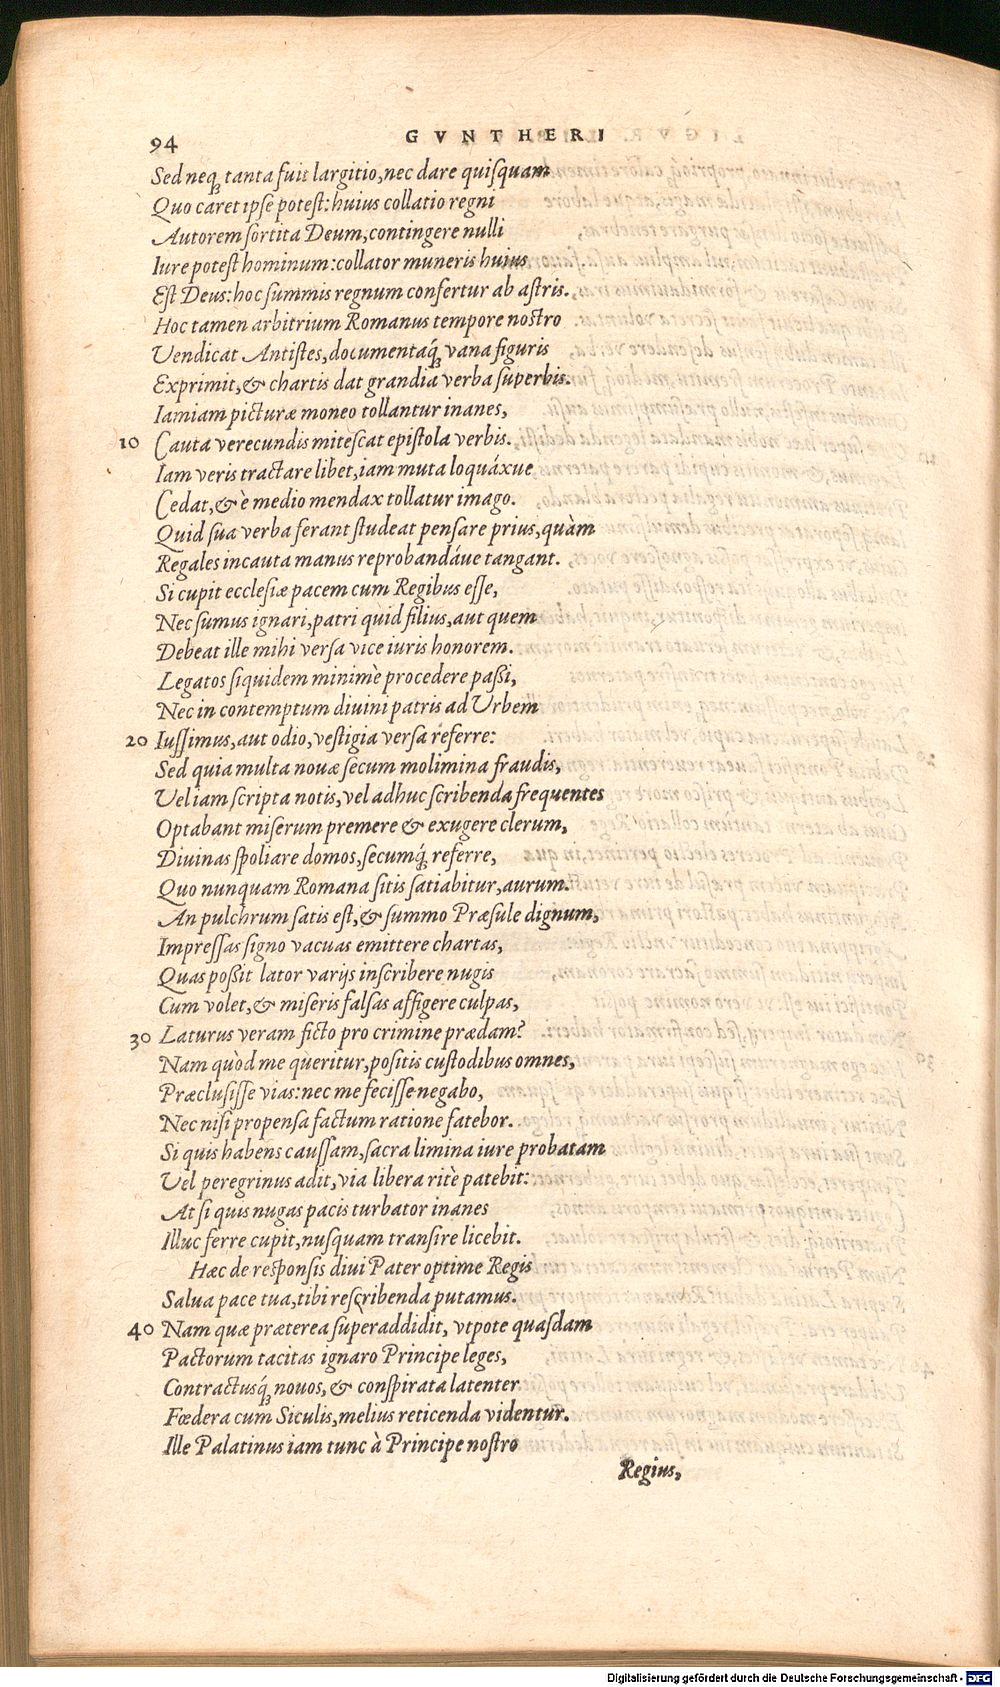 94 GVNTHERI
Sed neq; tanta fuit largitio, nec dare quisquam
Quo caret ipse potest: huius collatio regni
Autorem sortita Deum, contingere nulli
Iure potest hominum: collator muneris huius
Est Deus: hoc summis regnum confertur ab astris.
Hoc tamen arbitrium Romanus tempore nostro
Uendicat Antistes, documentaq́; vana figuris
Exprimit, & chartis dat grandia verba superbis.
Iamiam picturæ moneo tollantur inanes,
10 Cauta verecundis mitescat epistola verbis.
Iam veris tractare libet, iam muta loquáxue
Cedat, & è medio mendax tollatur imago.
Quid sua verba ferant studeat pensare prius, quàm
Regales incauta manus reprobandáue tangant.
Si cupit ecclesiæ pacem cum Regibus esse,
Nec sumus ignari, patri quid filius, aut quem
Debeat ille mihi versa vice iuris honorem.
Legatos siquidem minimè procedere paßi,
Nec in contemptum diuini patris ad Urbem
20 Iussimus, aut odio, vestigia versa referre:
Sed quia multa nouæ secum molimina fraudis,
Uel iam scripta notis, vel adhuc scribenda frequentes
Optabant miserum premere & exugere clerum,
Diuinas spoliare domos, secumq́; referre,
Quo nunquam Romana sitis satiabitur, aurum.
An pulchrum satis est, & summo Præsule dignum,
Impressas signo vacuas emittere chartas,
Quas poßit lator varijs inscribere nugis
Cum volet, & miseris falsas affigere culpas,
30 Laturus veram ficto pro crimine prædam?
Nam quòd me queritur, positis custodibus omnes,
Præclusisse vias: nec me fecisse negabo,
Nec nisi propensa factum ratione fatebor.
Si quis habens caussam, sacra limina iure probatam
Uel peregrinus adit, via libera ritè patebit:
At si quis nugas pacis turbator inanes
Illuc ferre cupit, nusquam transire licebit.
Hæc de responsis diui Pater optime Regis
Salua pace tua, tibi rescribenda putamus.
40 Nam quæ præterea superaddidit, vtpote quasdam
Pactorum tacitas ignaro Principe leges,
Contractusq́; nouos, & conspirata latenter
Fœdera cum Siculis, melius reticenda videntur.
Ille Palatinus iam tunc à Principe nostro
Regius,
Digitalisierung gefördert durch die Deutsche Forschungsgemeinschaft - DFG